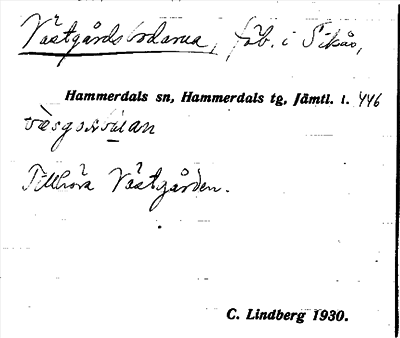 Västgårdsbodarna, fäb. i Sikås,
Hammerdals sn, Hammerdals tg, Jämtl. l. 446
Tillhöra Västgården.
C. Lindberg 1930.